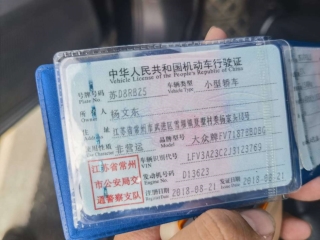 中华人民共和国机动车行驶证
Vehicle License of the People's Republic of China
号牌号码 苏D8R825 车辆类型 小型轿车
Plate No. Vehicle Type
所有人 杨文东
住址 江苏省常州市武进区
使用性质 非营运 品牌型号 大众牌
江苏省常州
市公安局交
通警察支队
车辆识别代号
VIN
LFV3A23C2J3123769
发动机号码 D13623
Engine No.
注册日期 2018-08-21 发证日期 2018-08-21